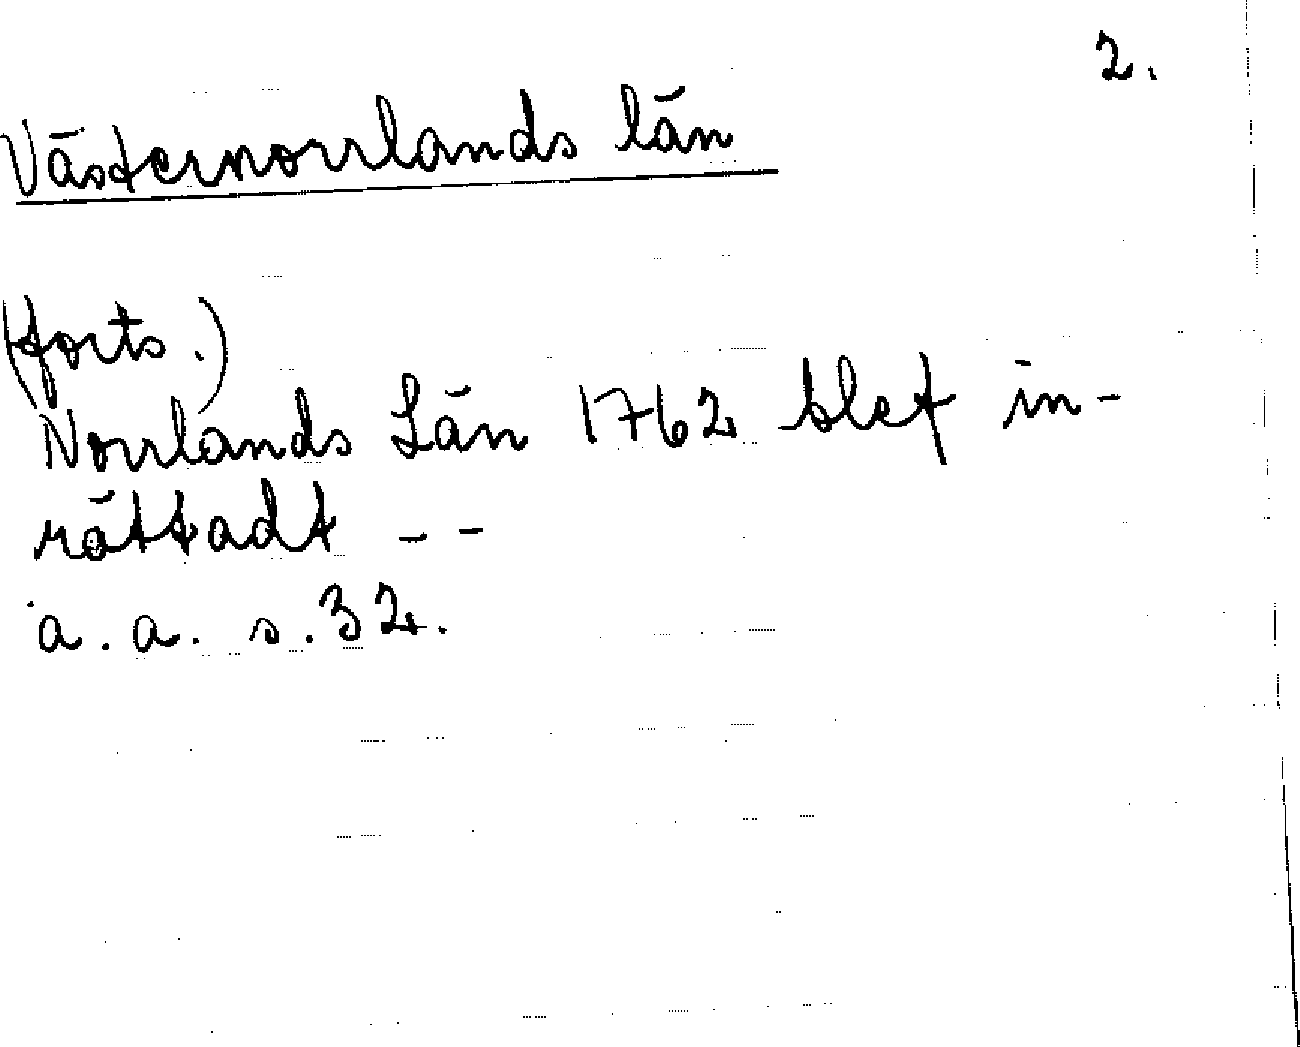 2.
Västernorrlands län
(forts.)
Norrlands Län 1762 blef in-
rättadt - -
a. a. s. 32.